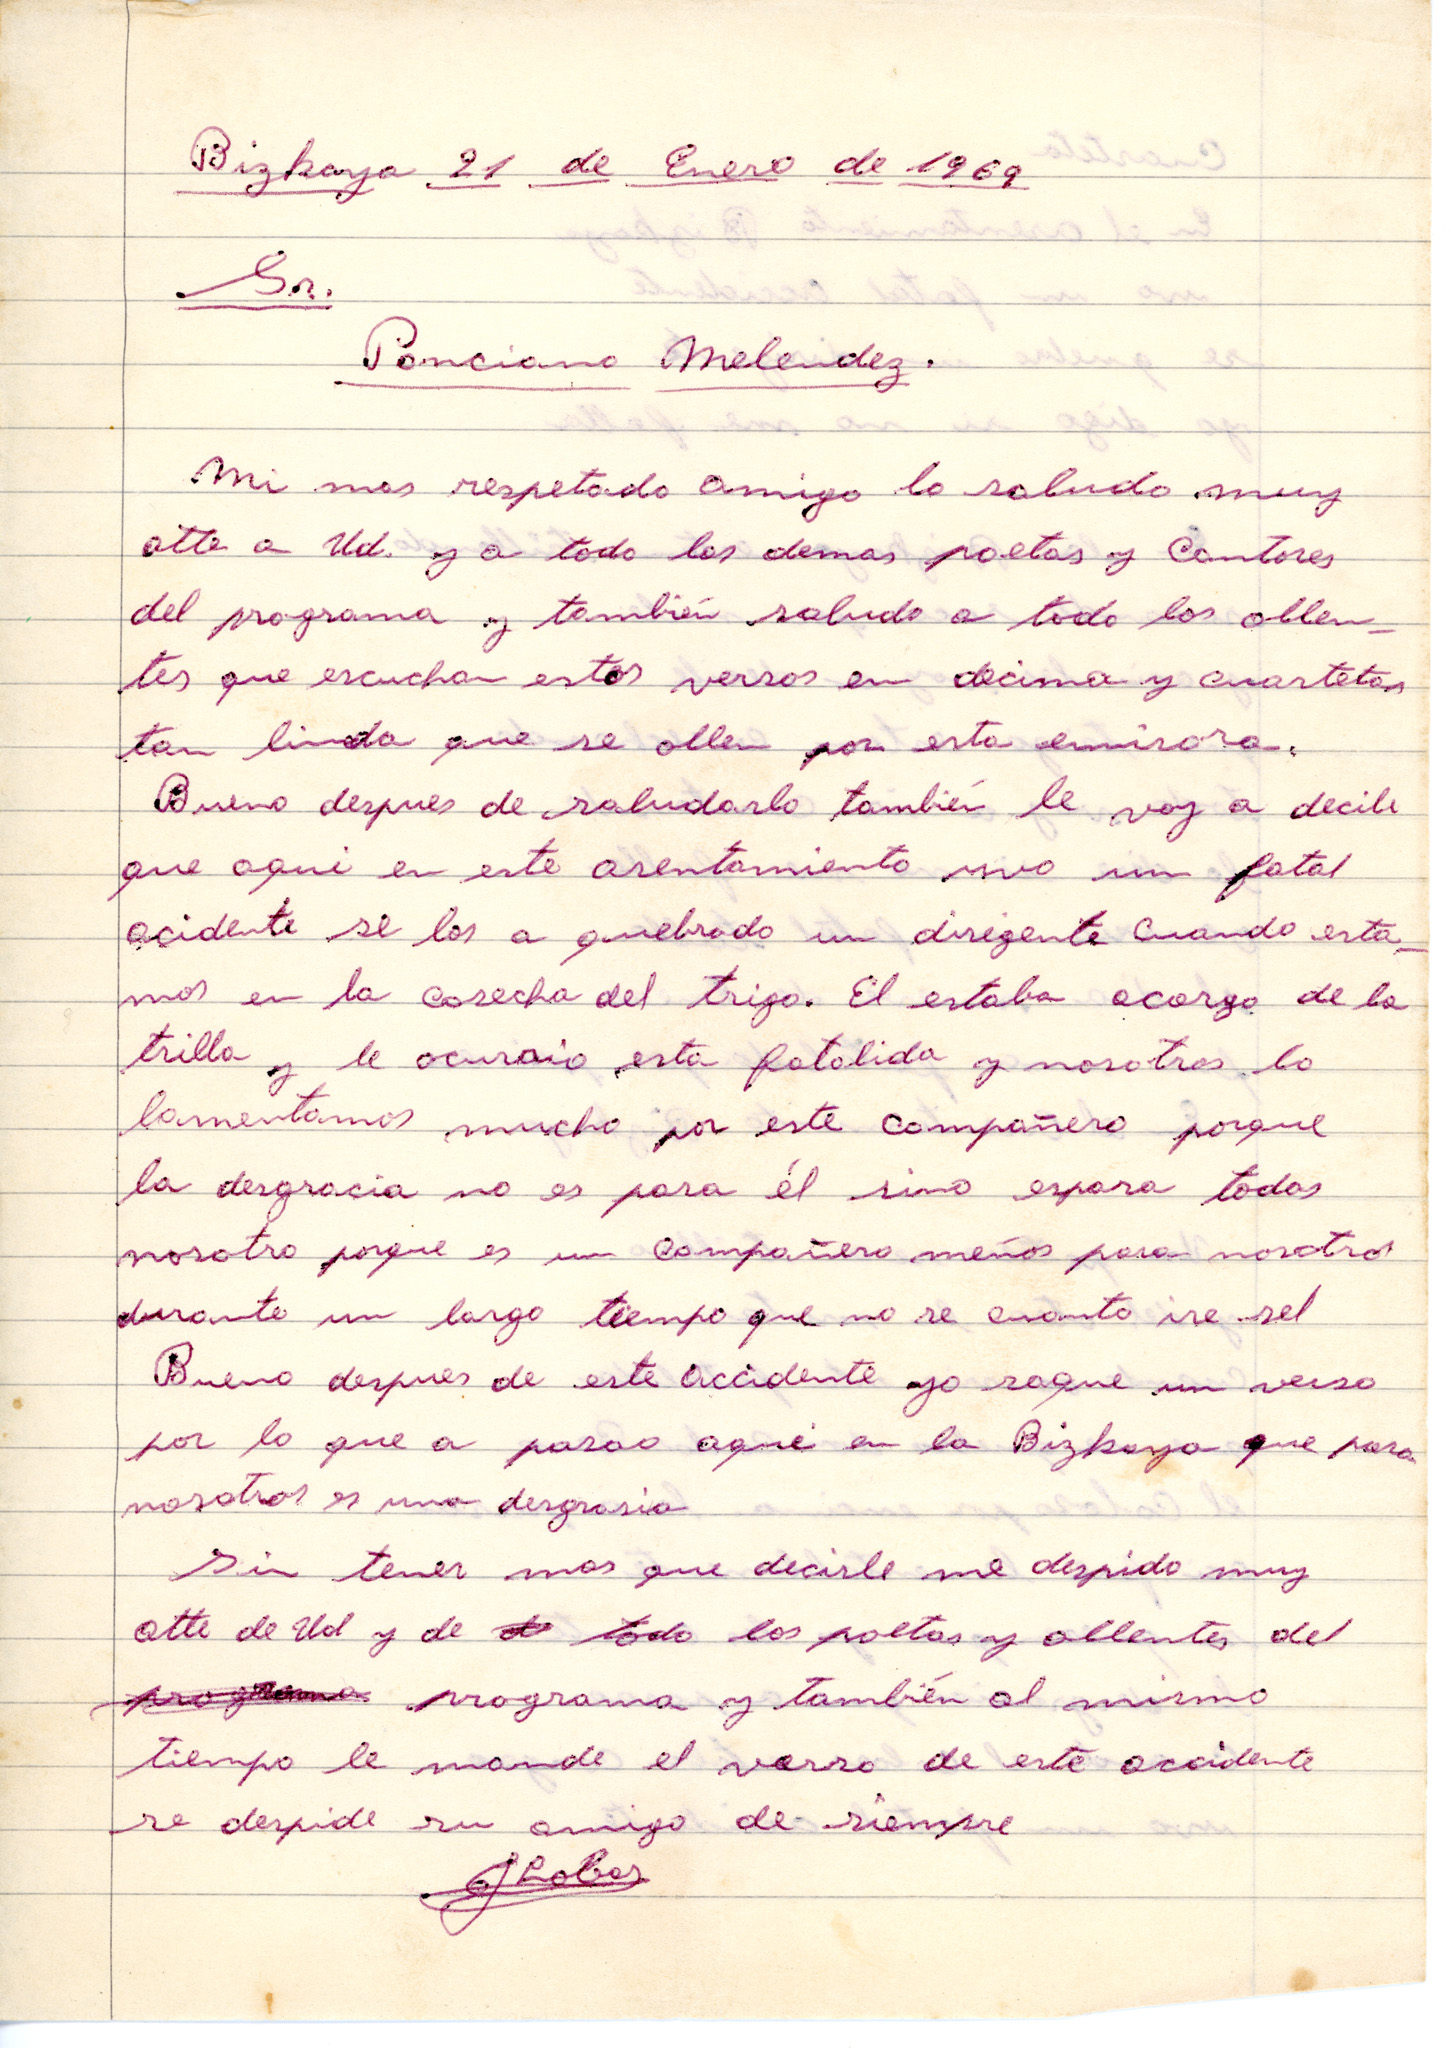 Bizkaya 21 de Enero de 1969
Sr.
Ponciano Melendez.
Mi mas respetado amigo lo saludo muy
atte a Ud. y a todo los demas poetas y Cantores
del programa y también saludo a todo los ollen-
tes que escuchan estos versos en decima y cuartetas
tan linda que se ollen por esta emisora.
Bueno despues de saludarlo también le voy a decile
que aqui en este asentamiento uvo un fatal
acidente se los a quebrado un dirigente cuando esta-
mos en la cosecha del trigo. El estaba acargo de la
trilla y le ocurrio esta fatalida y nosotros lo
lamentamos mucho por este compañero porque
la desgracia no es para él sino espara todos
nosotro porque es un compañero meños para nosotros
durante un largo tiempo que no se cuanto ire sel
Bueno despues de este accidente yo saque un verso
por lo que a pasao aqui en la Bizkaya que para
nosotros es una desgrasia
Sin tener mas que decirle me despido muy
atte de Ud y de todo los poetas y ollentes del
programa programa y también al mismo
tiempo le mande el verso de este accidente
se despide su amigo de siempre
JLobos